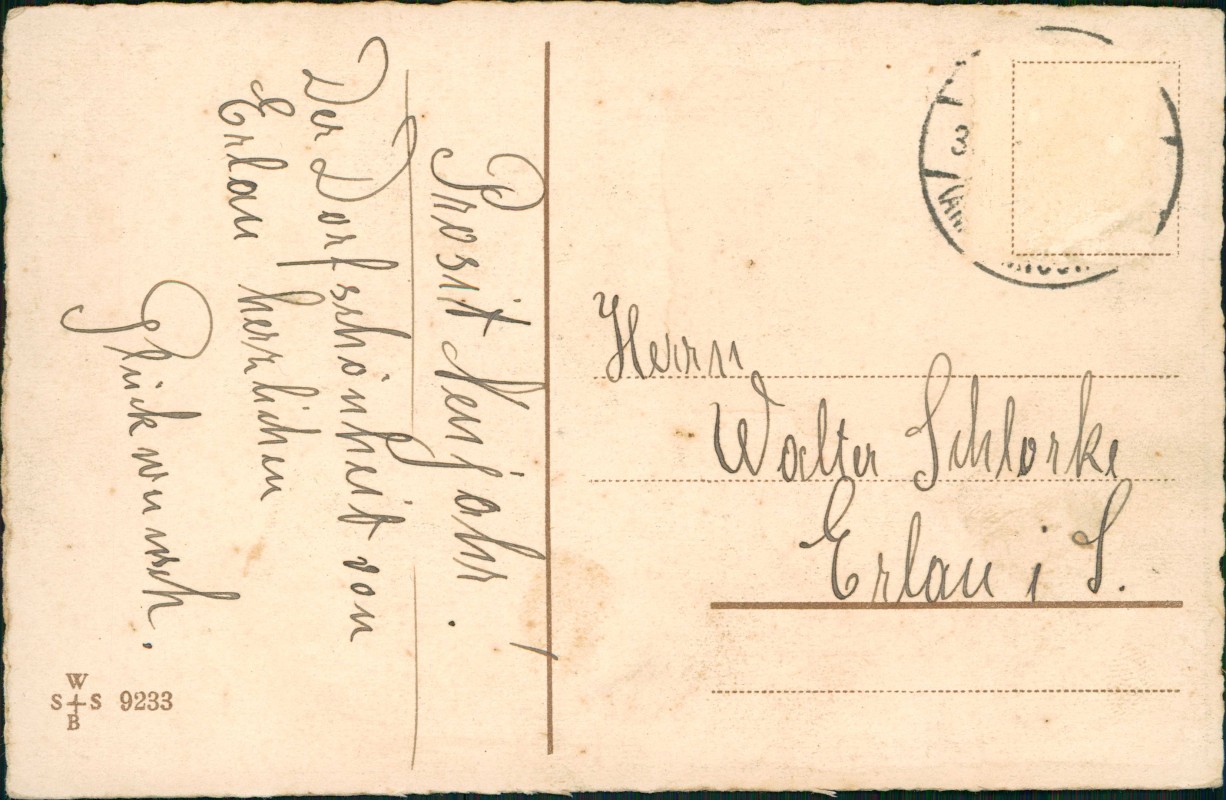 Prosit Neujahr!
Der Dorfschönheit von
Erlau herzlichen
Glückwunsch.
Herrn
Walter Schlorke
Erlau i S.
W
S S 9233
B
3